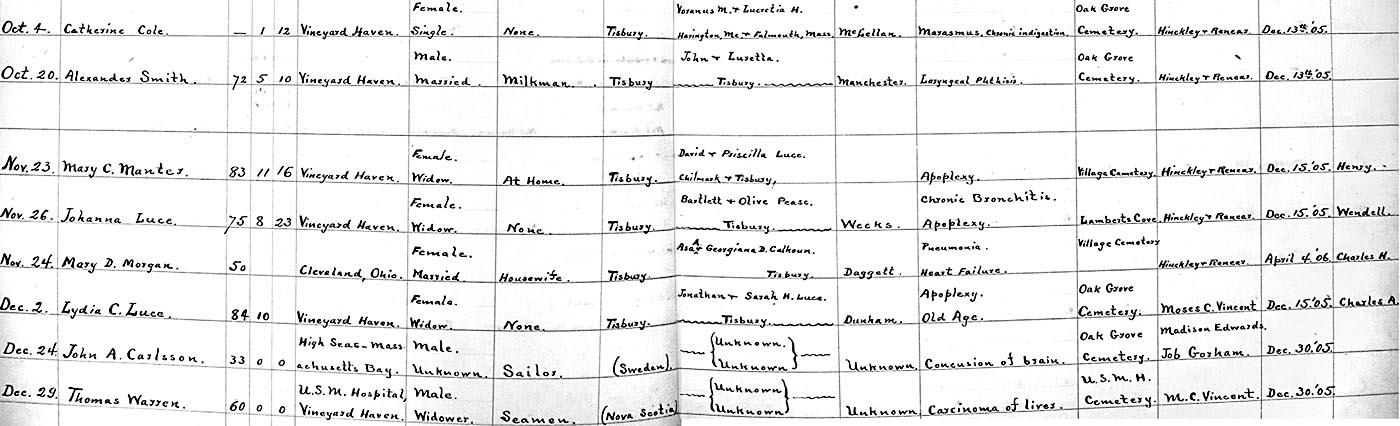 Female. Voranus M. + Lucretia H. Oak Grove
Oct. 4. Catherine Cole. — 1 12 Vineyard Haven. Single. None. Tisbury. Harington, Me. + Falmouth, Mass. McLellan. Marasmus, Chronic indigestion. Cemetery. Hinckley + Renear. Dec. 13th '05.
Male. John + Lusetta. Oak Grove
Oct. 20. Alexander Smith. 72 5 10 Vineyard Haven. Married. Milkman. Tisbury Tisbury. Manchester. Laryngeal Phthisis. Cemetery. Hinckley + Renear. Dec. 13th '05.
Female. David + Priscilla Luce.
Nov. 23. Mary C. Manter. 83 11 16 Vineyard Haven. Widow. At Home. Tisbury. Chilmark + Tisbury, Apoplexy. Village Cemetery. Hinckley + Renear. Dec. 15.'05. Henry.
Female. Bartlett + Olive Pease. Chronic Bronchitis.
Nov. 26. Johanna Luce. 75 8 23 Vineyard Haven. Widow. None. Tisbury Tisbury. Weeks. Apoplexy. Lamberts Cove. Hinckley + Renear. Dec. 15.'05. Wendell.
Female. Asa A. + Georgiana D. Calhoun. Pneumonia. Village Cemetery
Nov. 24. Mary D. Morgan. 50 Cleveland, Ohio. Married. Housewife. Tisbury. Tisbury. Daggett. Heart Failure. Hinckley + Renear. April 4.'06. Charles H.
Female. Jonathan + Sarah H. Luce. Apoplexy. Oak Grove
Dec. 2. Lydia C. Luce. 84 10 Vineyard Haven. Widow. None. Tisbury. Tisbury. Dunham. Old Age. Cemetery. Moses C. Vincent Dec. 15.'05. Charles A.
High Seas-Mass Male. {Unknown.} Oak Grove Madison Edwards.
Dec. 24. John A. Carlsson. 33 0 0 achusetts Bay. Unknown. Sailor. (Sweden). {Unknown} Unknown. Concusion of brain. Cemetery. Job Gorham. Dec. 30.'05.
U.S.M. Hospital, Male. {Unknown} U.S.M.H.
Dec. 29. Thomas Warren. 60 0 0 Vineyard Haven. Widower. Seamen. (Nova Scotia) {Unknown} Unknown. Carcinoma of liver. Cemetery. M.C. Vincent. Dec. 30.'05.